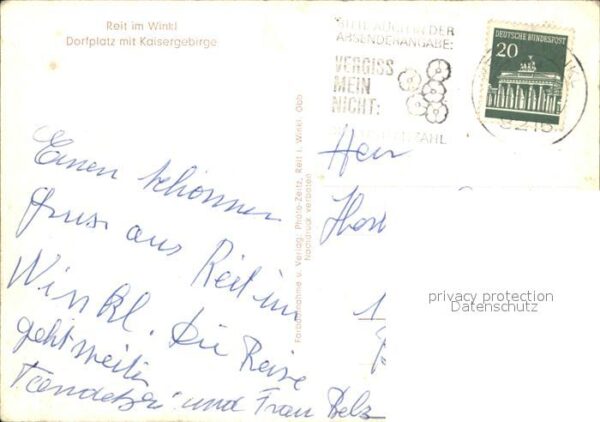 Reit im Winkl
Dorfplatz mit Kaisergebirge
BITTE AUCH IN DER
ABSENDERANGABE:
VERGISS
MEIN
NICHT:
DEUTSCHE BUNDESPOST
20
Herr
Einen schönnen
gruss aus Reit im
Winkl. Die Reise
geht weiter
und Frau Belz
Farbaufnahme u. Verlag: Photo-Zeitz, Reit i. Winkl, Obb
Nachdruck verboten
privacy protection
Datenschutz